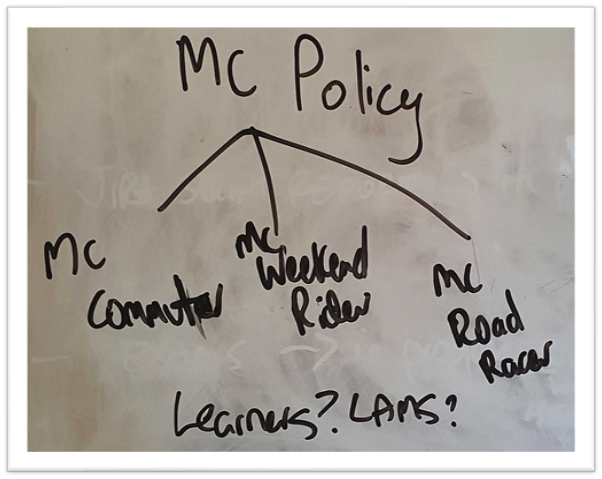 MC Policy
MC
Commuter
MC
Weekend
Rider
MC
Road
Racer
Learners? LAMS?